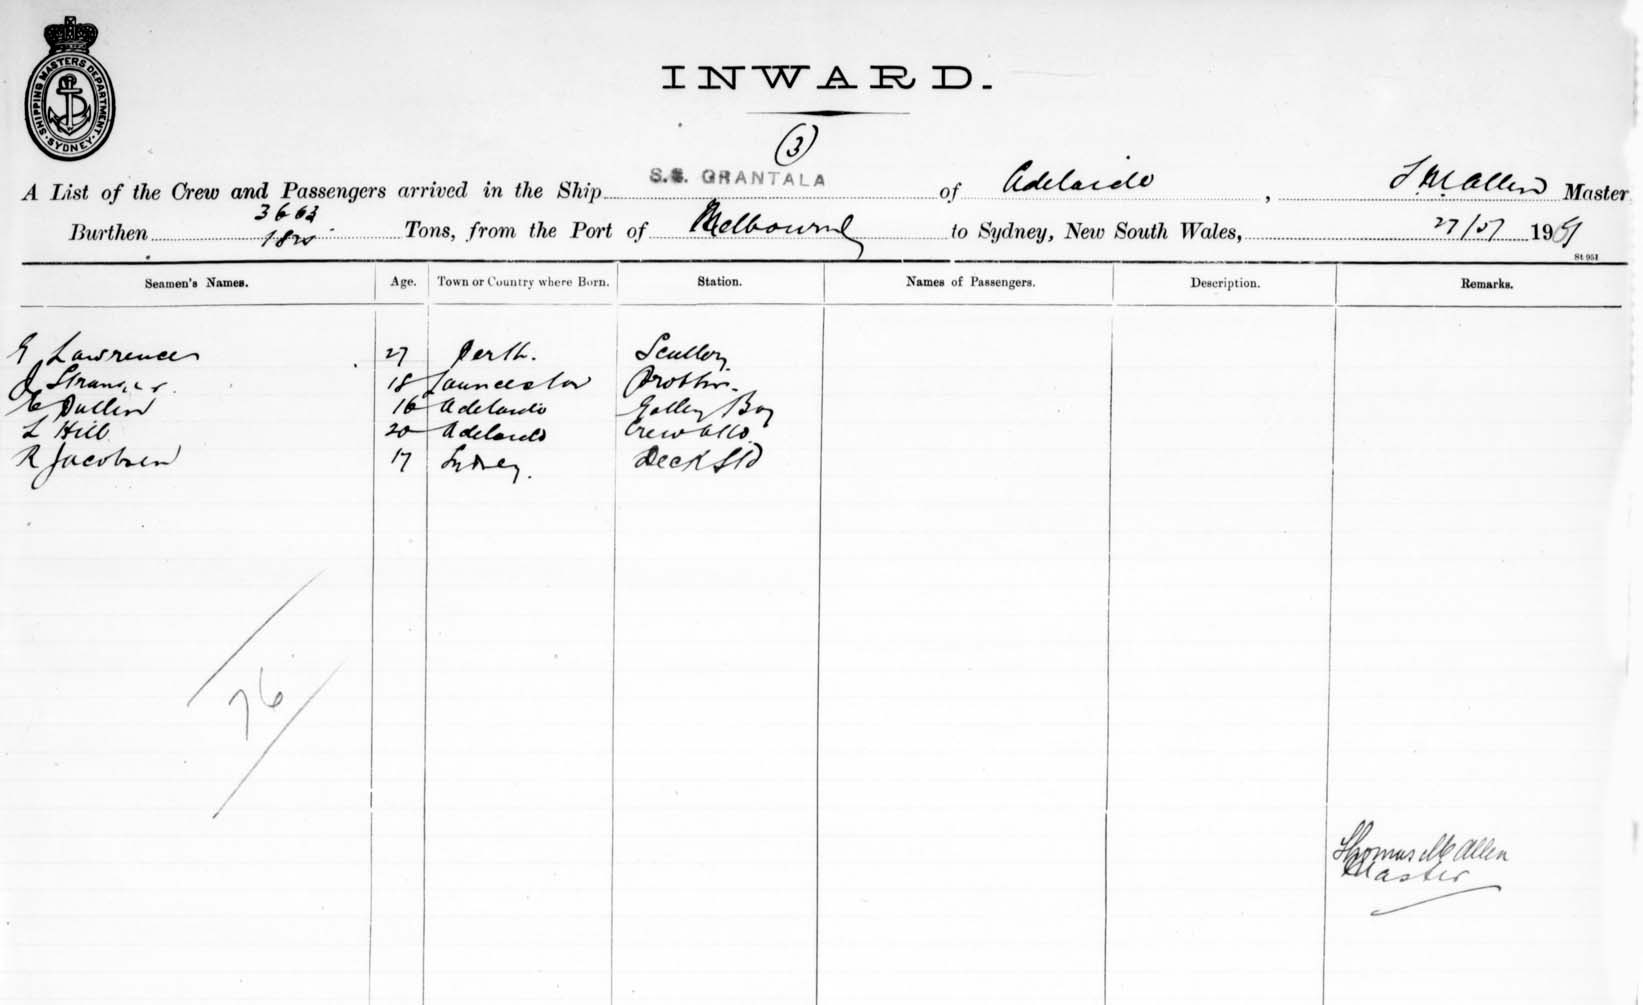 SHIPPING MASTERS DEPARTMENT. SYDNEY
INWARD.
(3)
A List of the Crew and Passengers arrived in the Ship S.S. GRANTALA of Adelaide, Master
Burthen 3663 Tons, from the Port of Melbourne to Sydney, New South Wales, 27/5/ 19
St 951
Seamen's Names. Age. Town or Country where Born. Station. Names of Passengers. Description. Remarks.
Lawrence 27 Perth. Scullery
18 Launceston
E Pullen 16 Adelaide Galley Boy
L Hill 20 Adelaide Crew
R Jacobsen 17 Sydney. Deck Std
76
Thomas Allen
Master